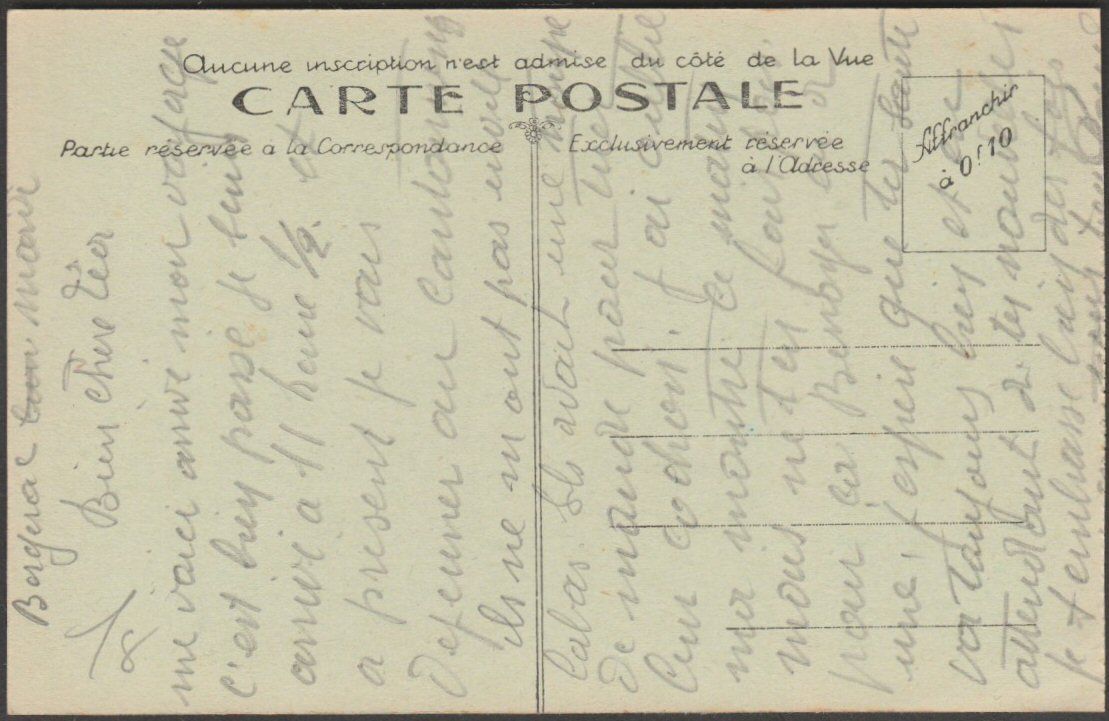 Aucune inscription n'est admise du côté de la Vue
CARTE POSTALE
Partie réservée à la Correspondance
Exclusivement réservée
à l'Adresse
Affranchir
à 0f10
Bergerac mardi
Bien chere
me voici arrivé mon voyage
c'est bien passé je suis
arrivé a 11 heure 1/2. et
a present je vais
dejeuner au cantonnement
ils ne m ont pas envoie
labas. Ils avait une
de mande pour
Cun cochon. j ai oublié
ma montre ce matin
mais ne t'en fait
pour ça
une, j espere que tes
va toujours bien et en
attendant de tes nouvelles
je t embrasse bien des fois